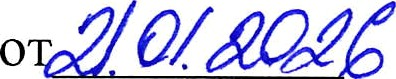 от 21.01.2026